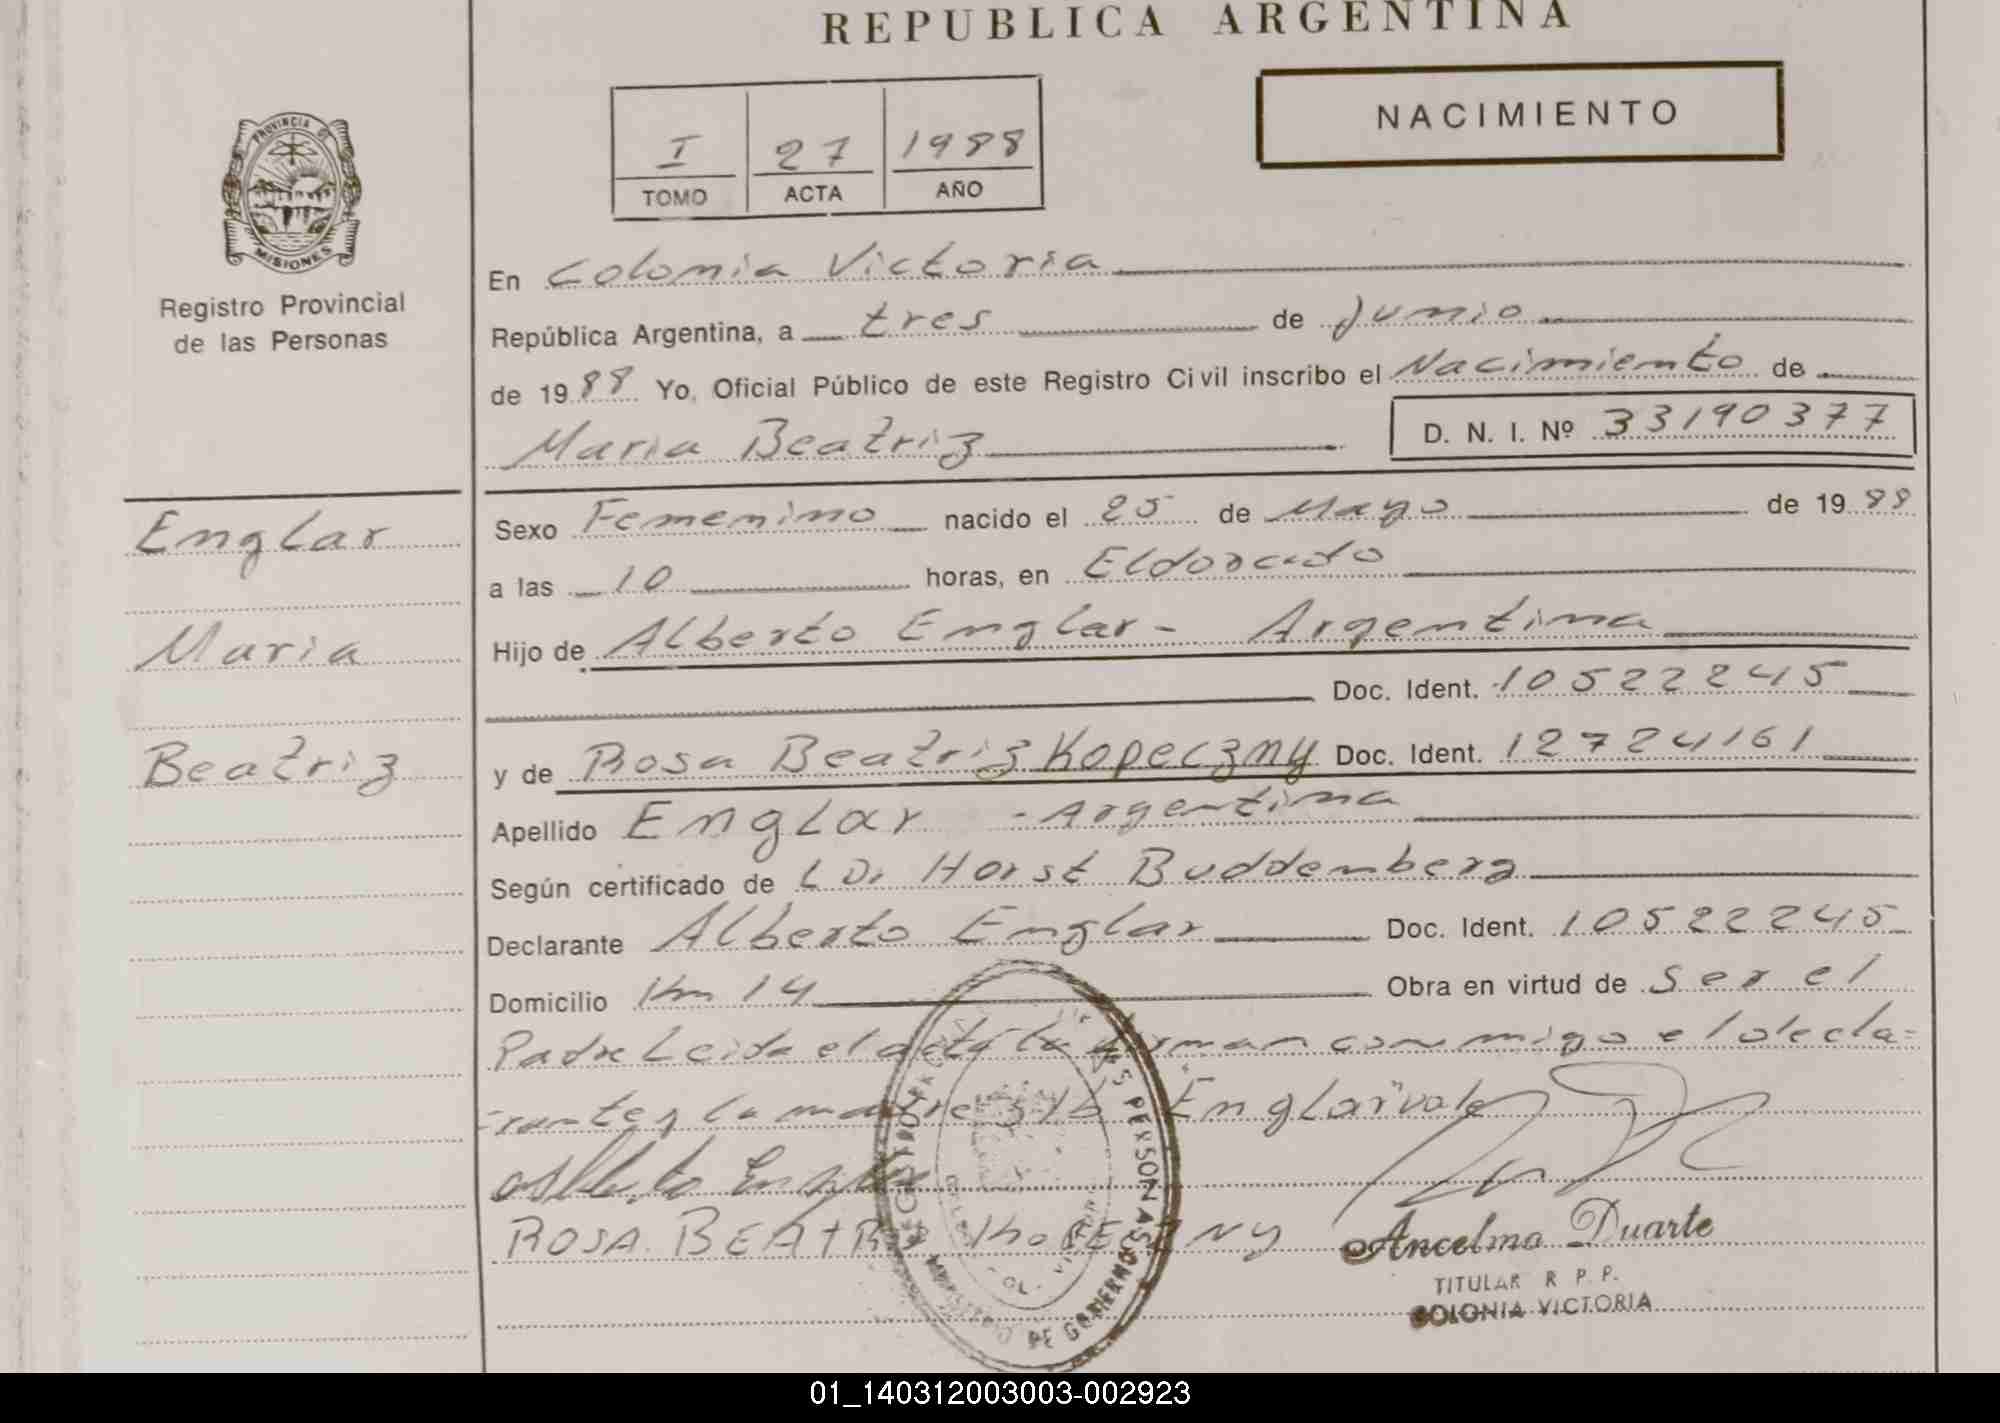 REPUBLICA ARGENTINA
PROVINCIA DE
MISIONES
Registro Provincial
de las Personas
I 27 1988
TOMO ACTA AÑO
NACIMIENTO
En Colonia Victoria
República Argentina, a tres de Junio
de 1988 Yo, Oficial Público de este Registro Civil inscribo el Nacimiento de
Maria Beatriz D. N. I. Nº 33190377
Englar
Maria
Beatriz
Sexo Femenino nacido el 25 de Mayo de 1988
a las 10 horas, en Eldorado
Hijo de Alberto Englar - Argentina
Doc. Ident. 10522245
y de Rosa Beatriz Kopeczny Doc. Ident. 12724161
Apellido Englar - Argentina
Según certificado de Dr Horst Buddemberg
Declarante Alberto Englar Doc. Ident. 10522245
Domicilio Km 14 Obra en virtud de ser el
Padre Leida el acta la firman conmigo el decla=
rante y la madre S/b "Englar" vale
Alberto Englar
ROSA BEATRIZ KOPECZNY
REGISTRO PROVINCIAL DE LAS PERSONAS
MINISTERIO DE GOBIERNO
COL. VICTORIA
Ancelmo Duarte
TITULAR R P. P.
COLONIA VICTORIA
01_140312003003-002923